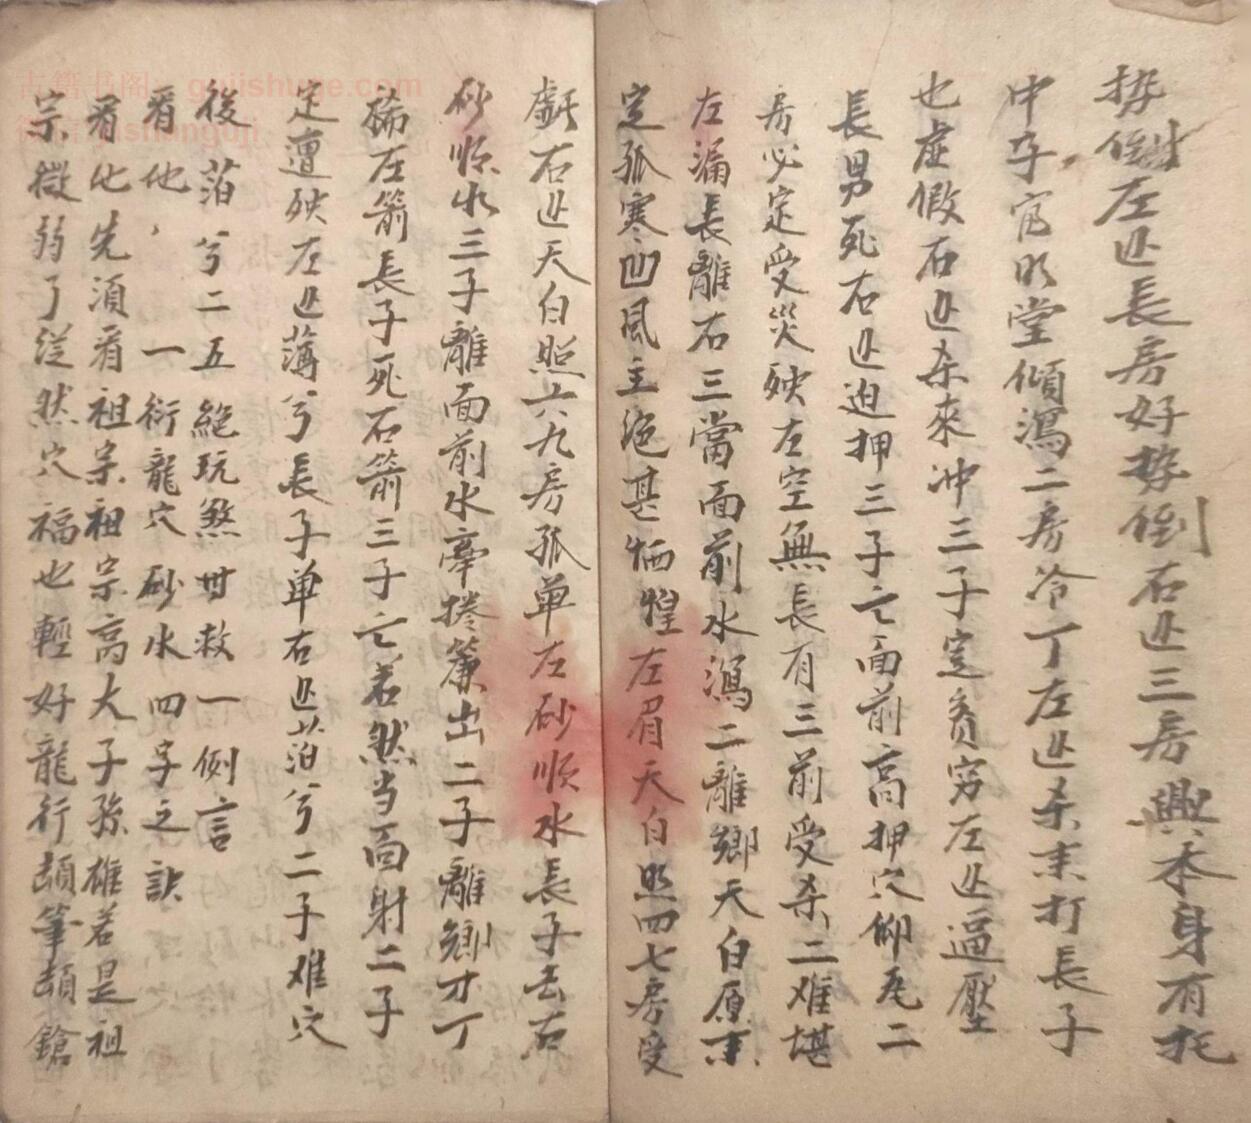 势倒左边長房好势倒右边三房興本身有托
中子官明堂傾瀉二房冷丁左边杀来打長子
也虛假右边杀來冲三子定貧穷左边逼壓
長男死右边迫押三子亡面前高押穴仰瓦二
房必定受災殃左空無長有三前受杀二难堪
左漏長離右三當面前水瀉二離鄉天白原來
定孤寒凹風主絕甚恓惶左眉天白照四七房受
虧右边天白照六九房孤單左砂順水長子去右
砂順水三子離面前水牽捲簾出二子離鄉才丁
稀左箭長子死右箭三子亡若然当面射二子
定遭殃左边薄兮長子単右边范兮二子难穴
後范兮二五絕玩煞毋救一例言
看他，一衍龍穴砂水四字之訣
看他先須看祖宗祖宗高大子孫雄若是祖
宗微弱了從然穴福也輕好龍行顛筆顛鎗
古籍书阁: gujishuge.com